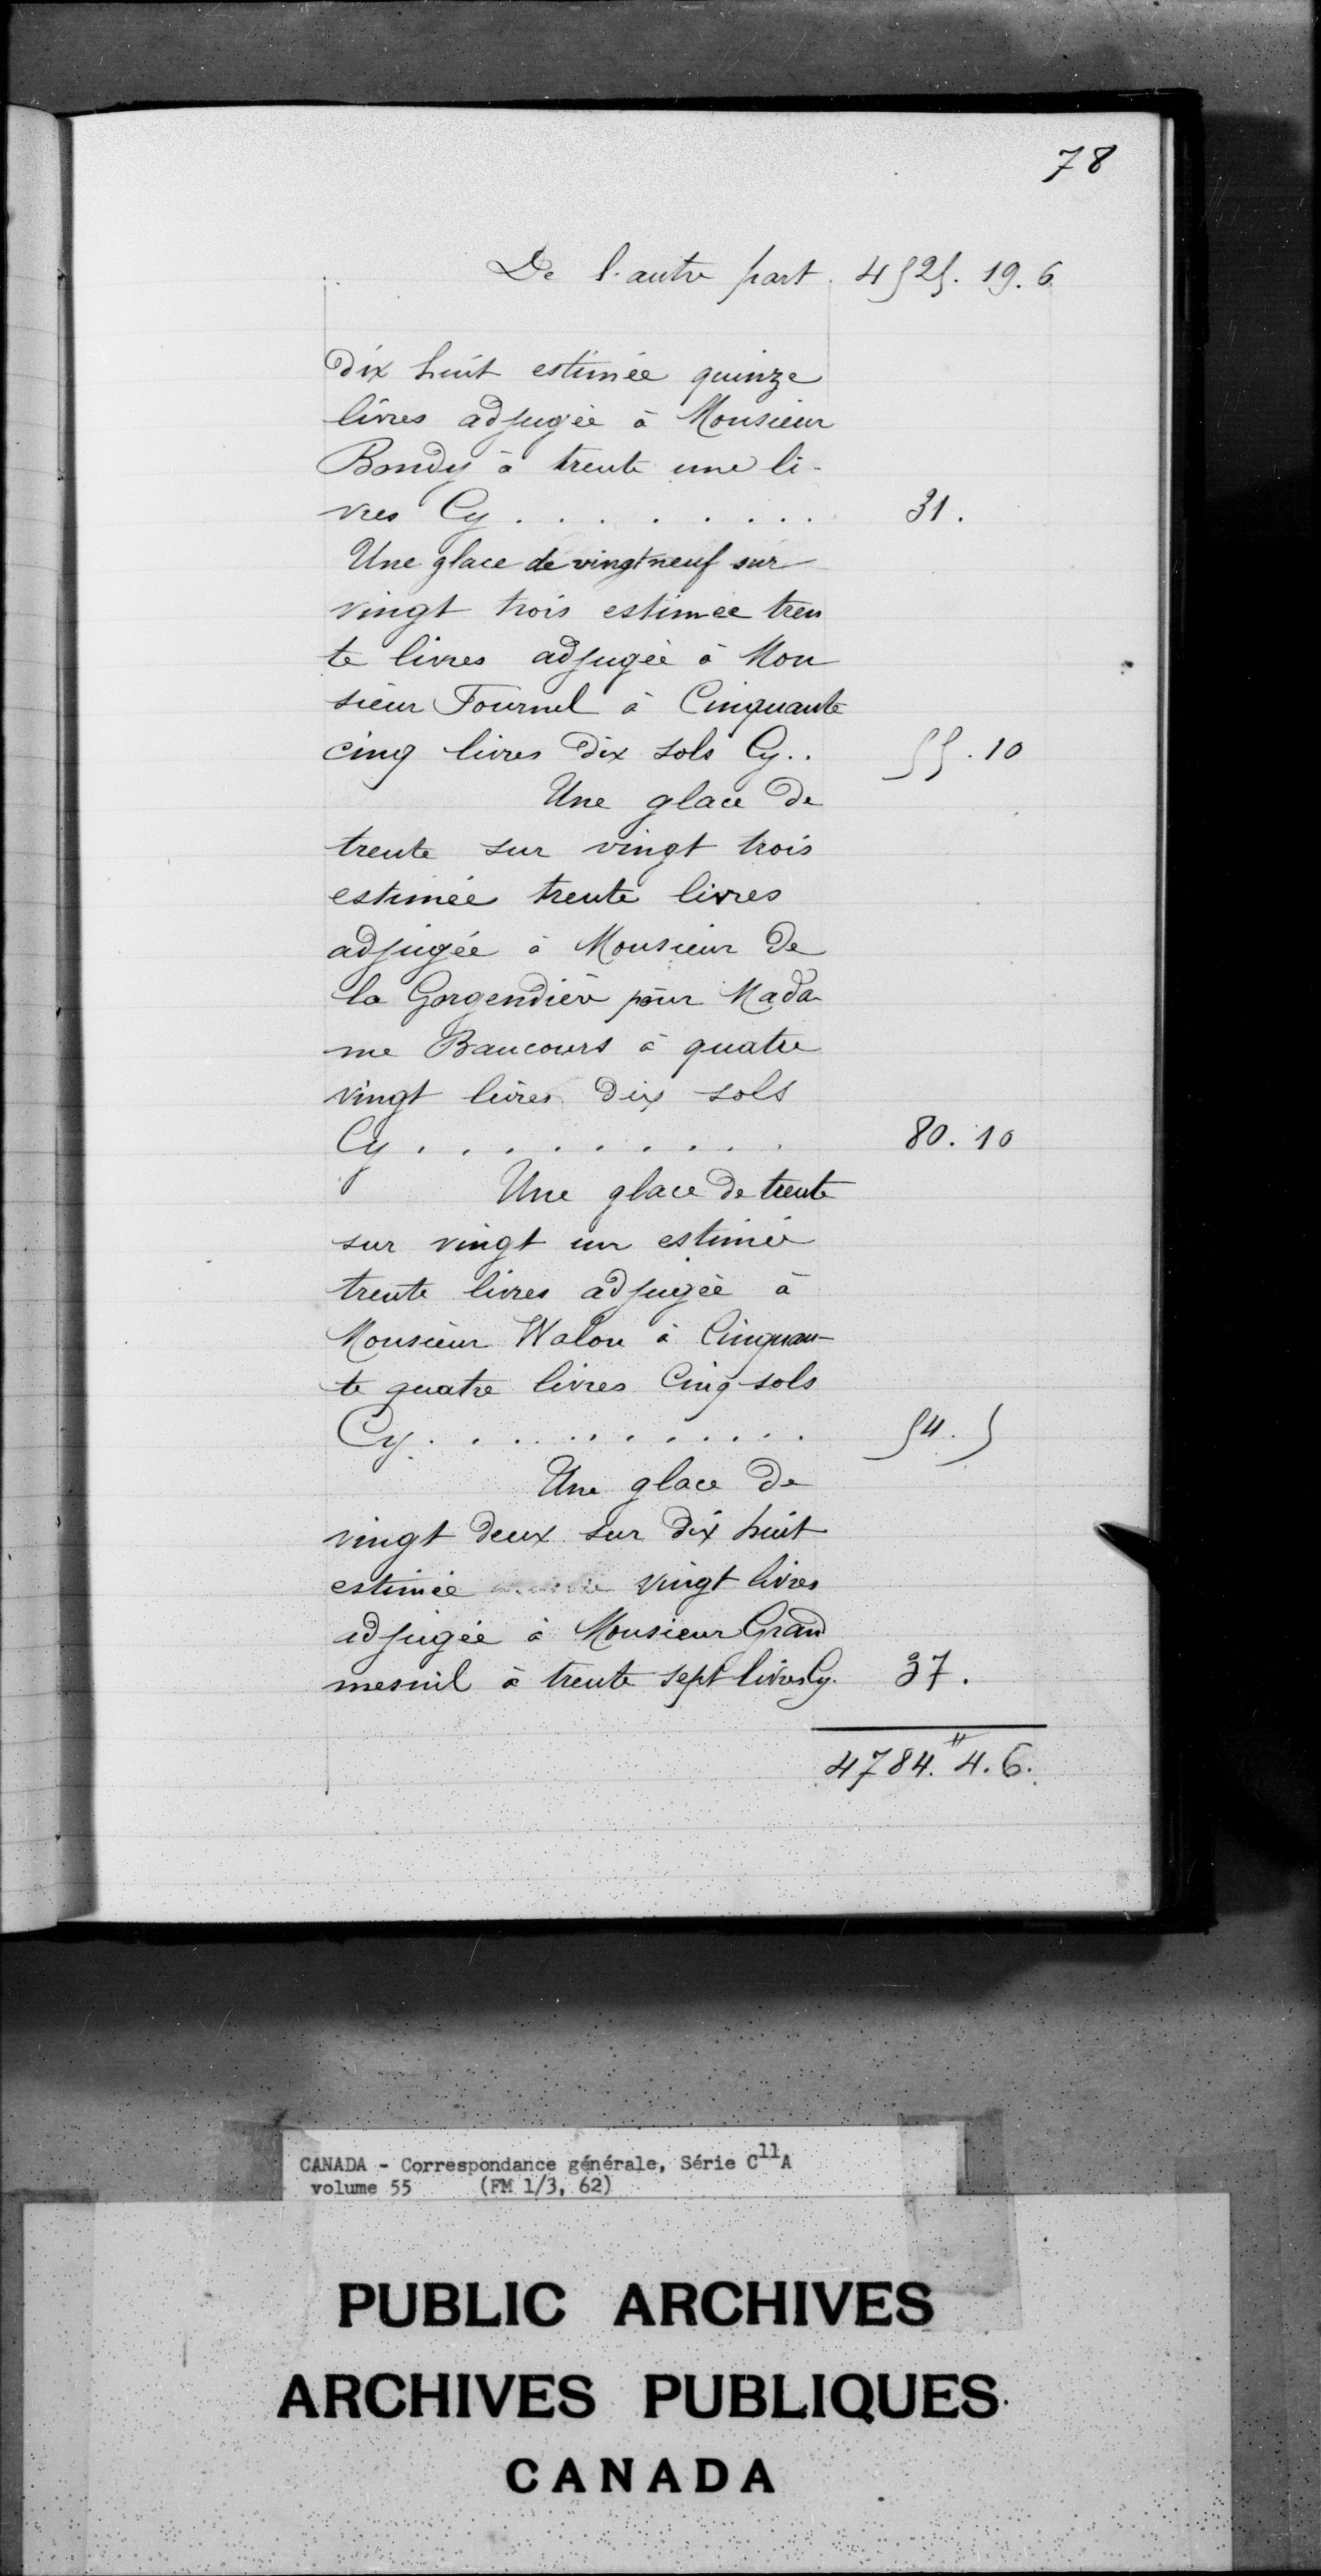 78
De l'autre part. 4525. 19. 6
dix huit estimée quinze
livres adjugée à Monsieur
Bondy à trente une li-
vres Cy . . . . . . . . . 31.
Une glace de vingt neuf sur
vingt trois estimée tren
te livres adjugée à Mon
sieur Fournel à Cinquante
cinq livres dix sols Cy . . 55. 10
Une glace de
trente sur vingt trois
estimée trente livres
adjugée à Monsieur de
la Gorgendière pour Mada
me Baucours à quatre
vingt livres dix sols
Cy . . . . . . . . . 80. 10
Une glace de trente
sur vingt un estimée
trente livres adjugée à
Monsieur Walon à Cinquan-
te quatre livres Cinq sols
Cy . . . . . . . . . . . 54. 5
Une glace de
vingt deux sur dix huit
estimée vingt livres
adjugée à Monsieur Grand
mesnil à trente sept livres Cy. 37.
4784.# 4. 6.
CANADA - Correspondance générale, Série C11A
volume 55 (FM 1/3, 62)
PUBLIC ARCHIVES
ARCHIVES PUBLIQUES
CANADA